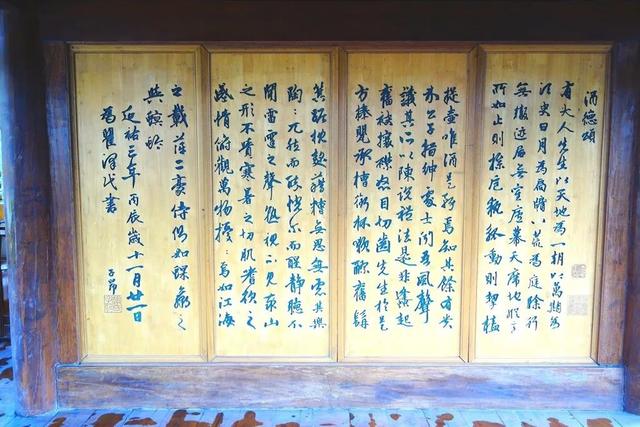 酒德頌
有大人先生以天地為一朝以萬期為
須臾日月為扃牖八荒為庭除行
無轍迹居無室廬幕天席地縱意
所如止則操卮執瓢動則挈榼
提壺唯酒是務焉知其餘有貴
介公子搢紳處士聞吾風聲
議其所以陳說禮法是非鋒起
奮袂攘襟怒目切齒先生於是
方捧罌承槽銜杯漱醪奮髯
箕踞枕麴藉糟無思無慮其樂
陶陶兀然而醉恍尒而醒靜聽不
聞雷霆之聲孰視不見泰山
之形不覺寒暑之切肌嗜欲之
感情俯觀萬物擾擾焉如江海
之載萍二豪侍側如蜾蠃之
與螟蛉
延祐三年丙辰歲十一月廿一日
為瞿澤書
子昂